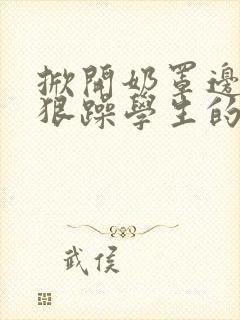 掀開奶罩邊
狠躁學生的
武侯